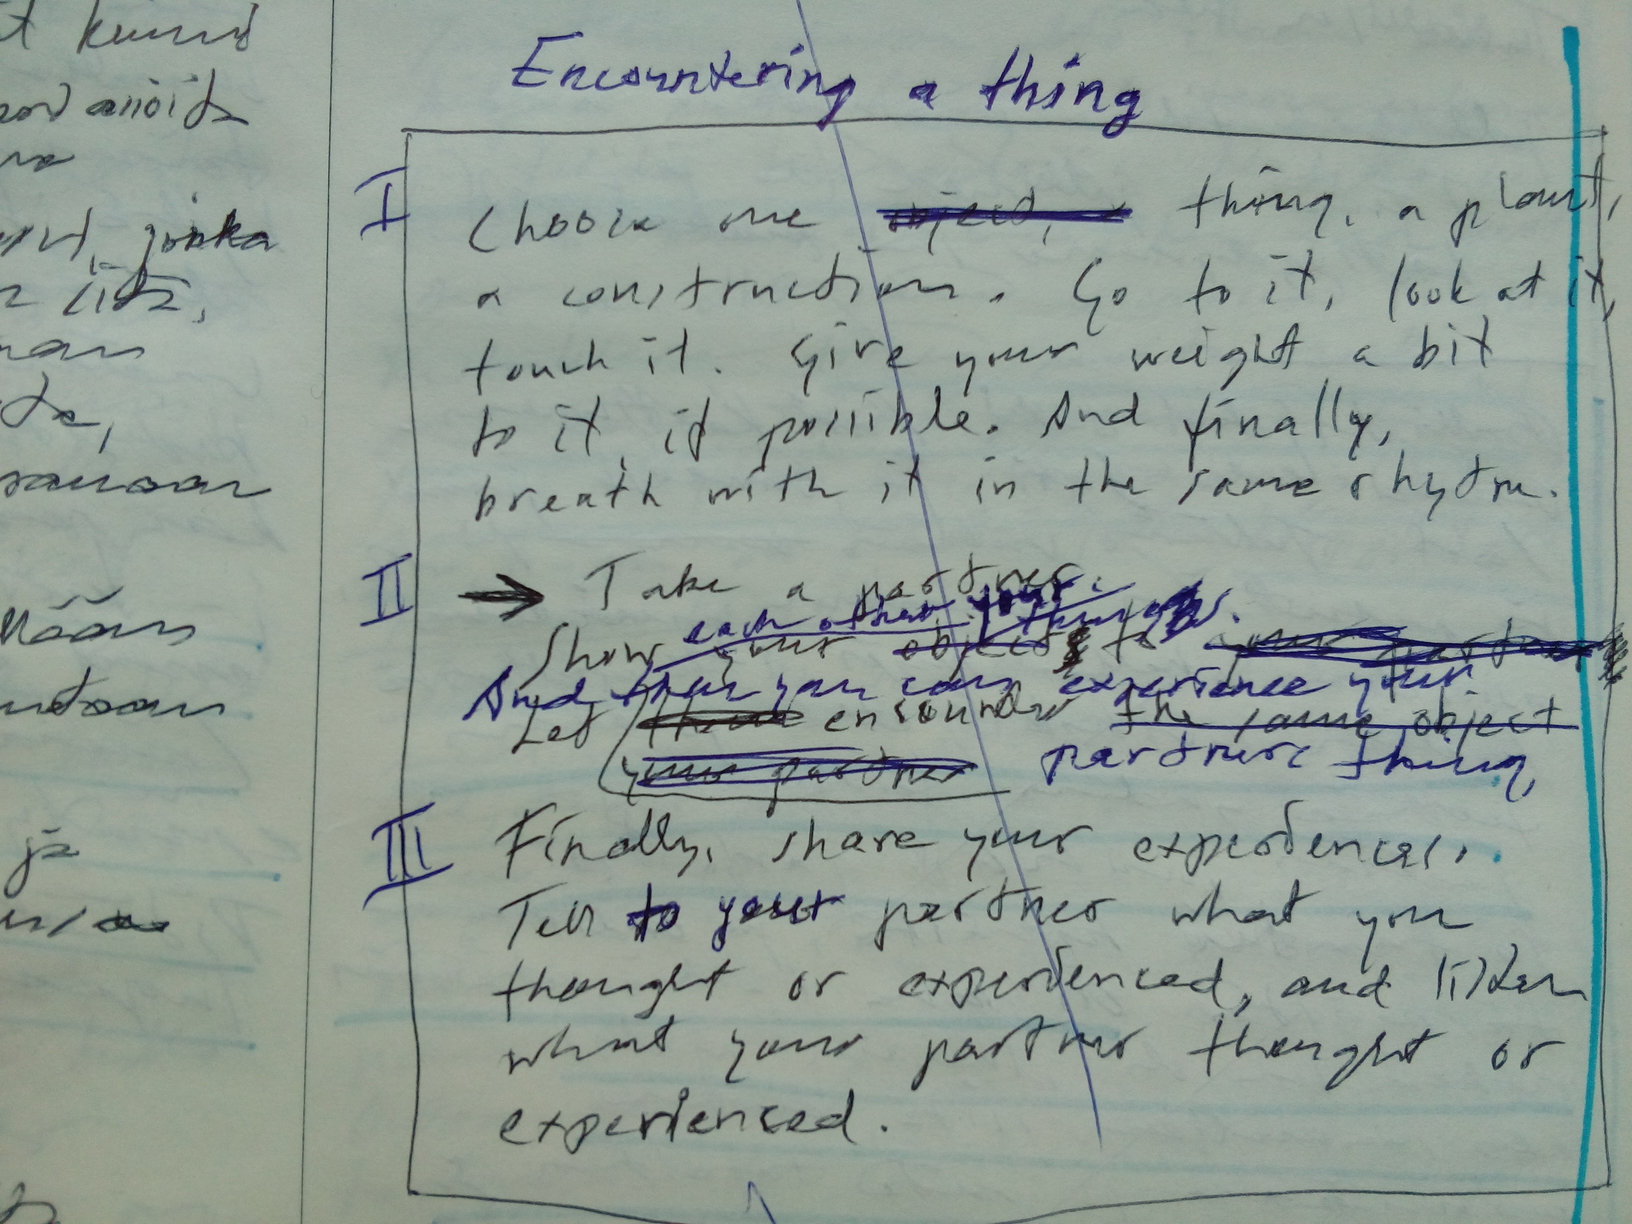 t
anoita
jonka
ja
Encountering a thing
I
Choose one object, thing, a plant,
a construction. Go to it, look at it,
touch it. Give your weight a bit
to it if possible. And finally,
breath with it in the same rhytm.
II
→ Take a partner.
each other your things.
Show your objects to your partner
And then you can experience your
Let them encounter the same object
your partner partners thing,
III
Finally, share your experiences.
Tell to your partner what you
thought or experienced, and listen
what your partner thought or
experienced.